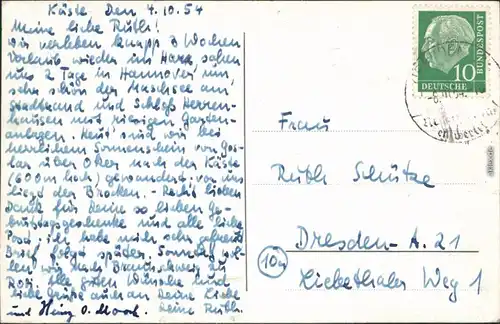 Käste Den 4.10.54
Meine liebe Ruth!
Wir verleben knapp 3 Wochen
Vorlaub wieder im Harz, sahen
uns 2 Tage in Hannover um,
sehr schön der Maschsee am
Stadtrand und Schloß Herren-
hausen mit riesigen Garten-
anlagen. Heut' sind wir bei
herrlichem Sonnenschein von Gos-
lar über Oker nach der Käste
(600m hoch) gewandert. vor uns
liegt der Brocken. - Recht lieben
Dank für Deine so lieben Ge-
burtstagsgeschenke und alle liebe
Post, ich habe mich sehr gefreut
Brief folgt später. Sonntag wol-
len wir nach Braunschweig zu
Rosi. Alle guten Wünsche und
liebe Grüße auch an Deine Liebe
und Heinz Deine Ruth.
10
DEUTSCHE
BUNDESPOST
Frau
Ruth Schütze
Dresden-A. 21
10a
Liebethaler Weg 1